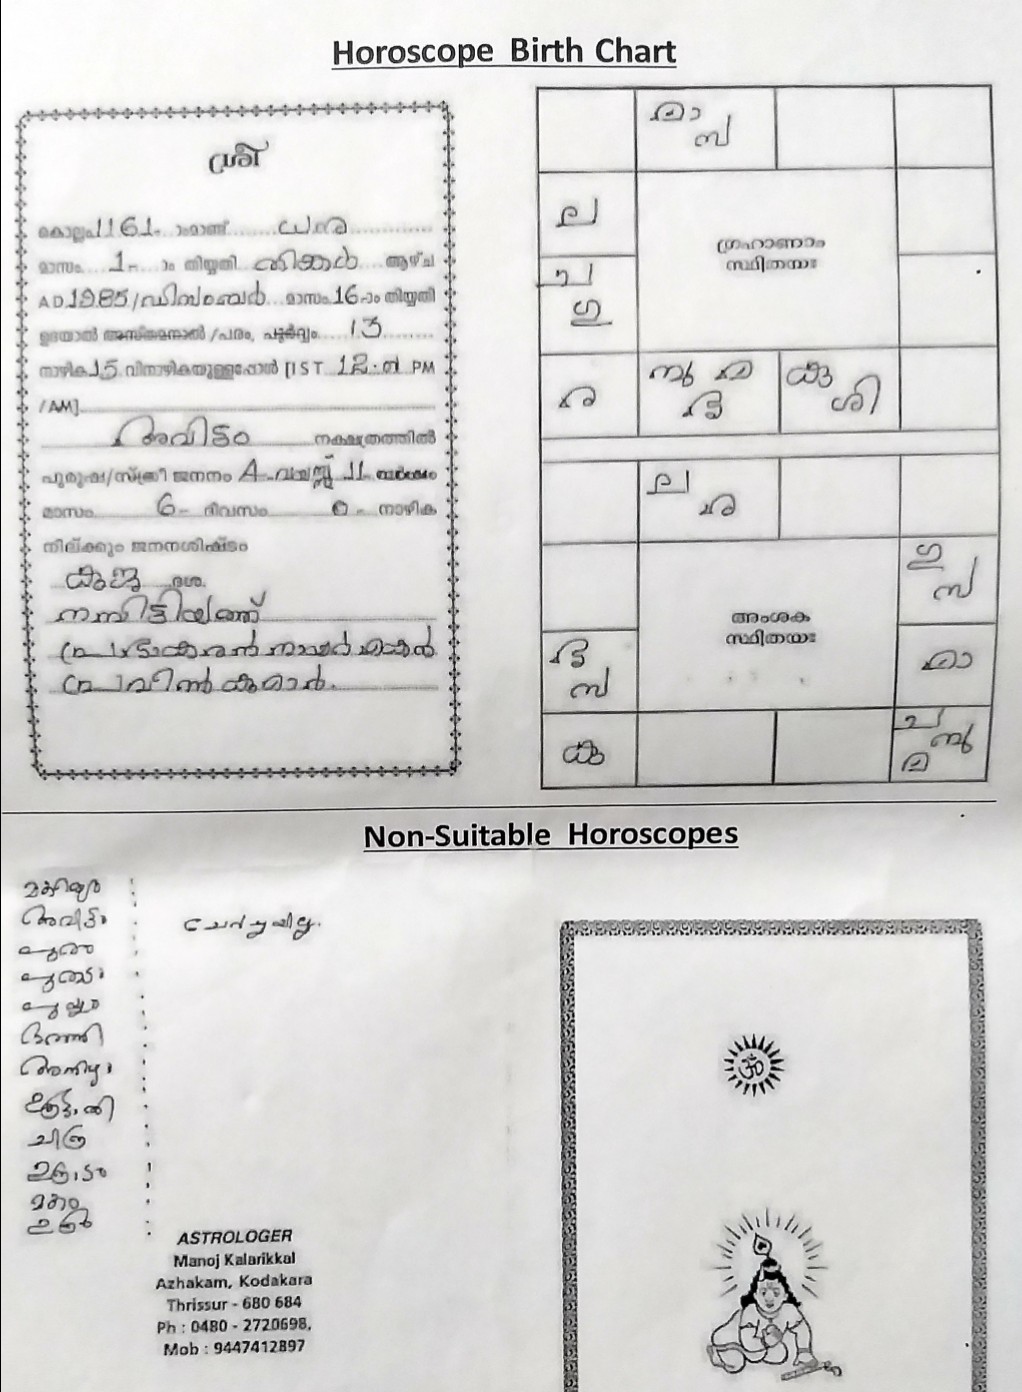 Horoscope Birth Chart
ശ്രീ
കൊല്ലം 1161-ാമാണ്ട് ധനു
മാസം 1-ാം തിയ്യതി തിങ്കൾ ആഴ്ച
A D 1985/ഡിസംബർ മാസം 16-ാം തിയ്യതി
ഉദയാൽ അസ്തമനാൽ /പരം, പൂർവ്വം 13
നാഴിക 15 വിനാഴികയുള്ളപ്പോൾ [I S T 12.01 PM
/AM]
അവിട്ടം നക്ഷത്രത്തിൽ
പുരുഷ/സ്ത്രീ ജനനം 4-വയസ്സ് 11-
മാസം 6- ദിവസം 0- നാഴിക
നില്ക്കും ജനനശിഷ്ടം
കുജ ദശ.
പ്രഭാകരൻ നായർ മകൻ
പ്രവീൺകുമാർ.
മാ
സ
ല
ച
ഗു
ര
ബു മ
ശു
കു
ശി
ഗ്രഹാണാം
സ്ഥിതയഃ
ല
ഗു
സ
അംശക
സ്ഥിതയഃ
സ
മാ
കു
ച
ബു
മ
Non-Suitable Horoscopes
മകീര്യം :
അവിട്ടം : ചേർച്ചയില്ല.
പൂരം :
പൂരാടം :
പൂയ്യം :
ഭരണി :
അനിഴം :
ഉത്രട്ടാതി :
ചിത്ര :
ഉത്രാടം :
മകം :
ഉത്രം :
ASTROLOGER
Manoj Kalarikkal
Azhakam, Kodakara
Thrissur - 680 684
Ph : 0480 - 2720698,
Mob : 9447412897
ॐ